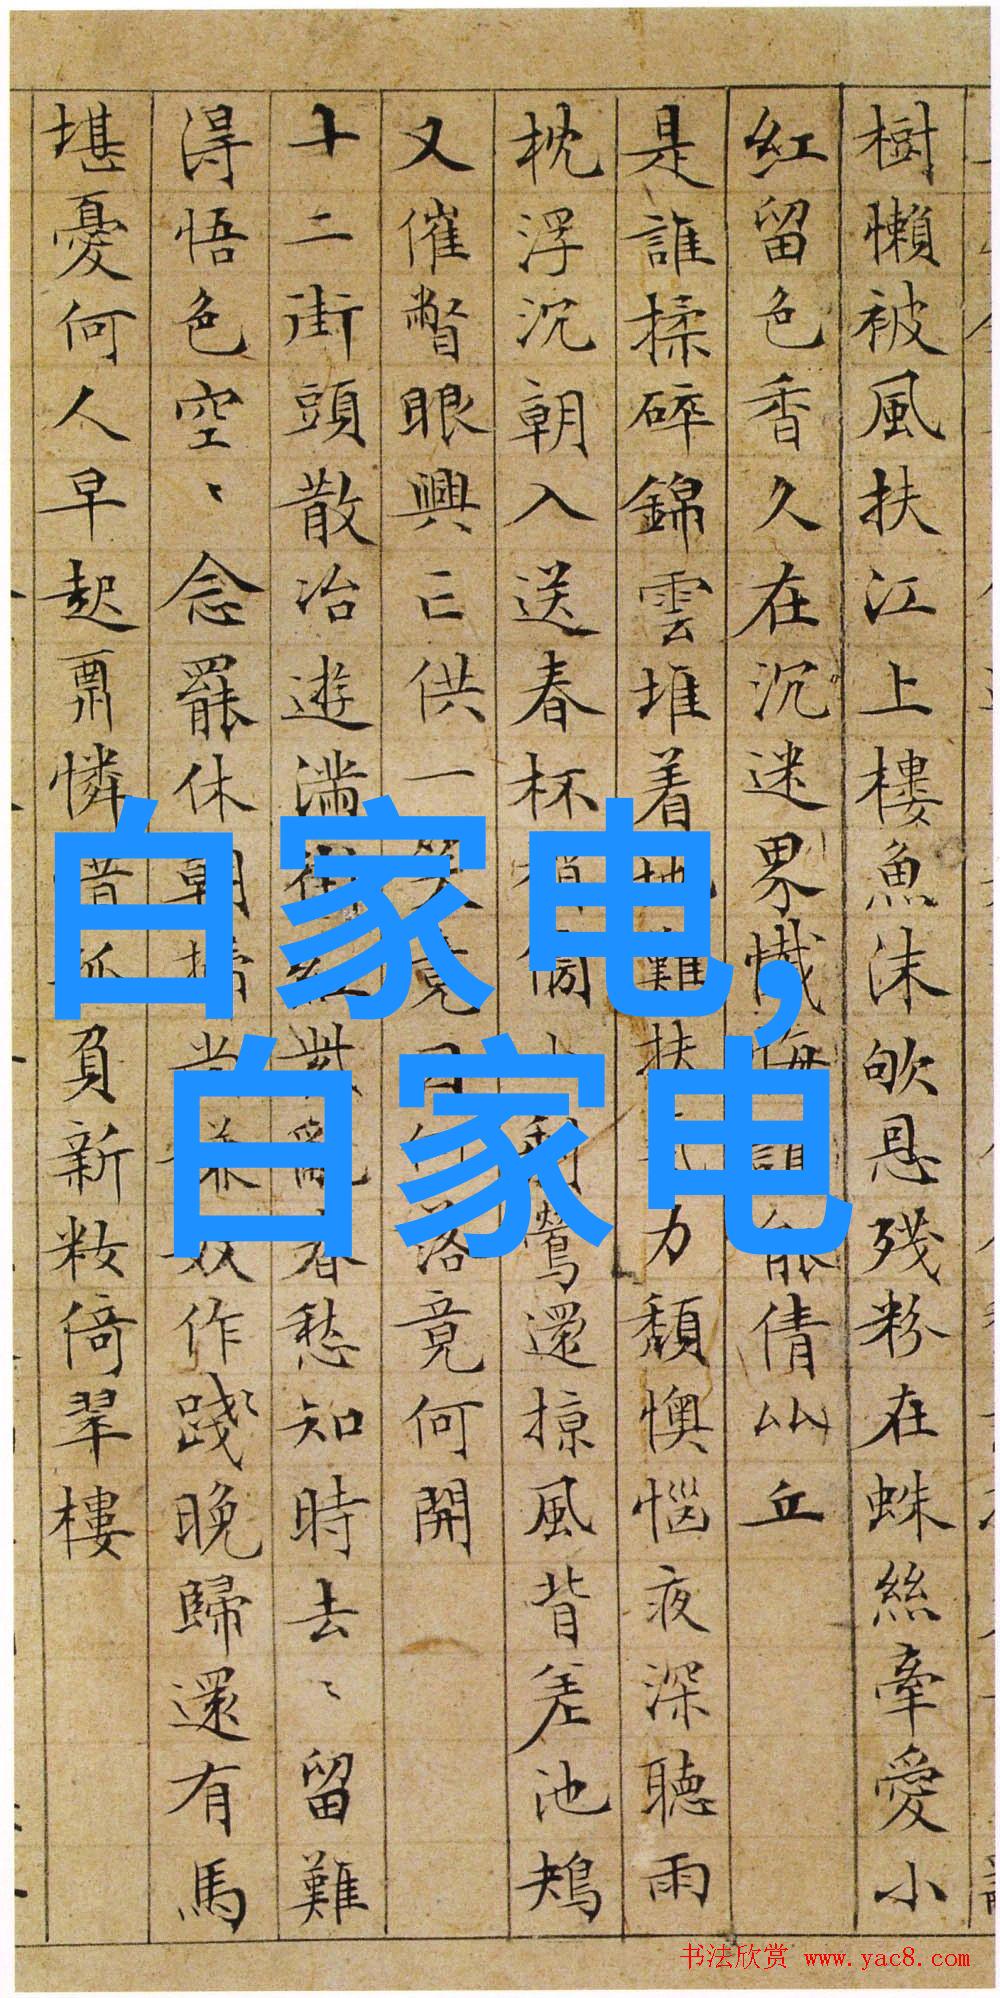 樹懶被風扶江上樓魚沫欨恩殘粉在蛛絲牽愛小
紅留色香久在沉迷界懺悔誰能倩比丘
是誰揉碎錦雲堆着地難扶力頹懊惱夜深聽雨
枕浮沉朝入送春杯鶯還掠風背差池鳷
又催瞥眼興亡供一落竟何開
十二街頭散冶遊滿街紅紫亂春愁知時去〻留難
得悟色空〻念罷休朝作踐晚歸還有馬
堪憂何人早起憐惜負新妝倚翠樓
白家电,
白家电
书法欣赏 www.yac8.com